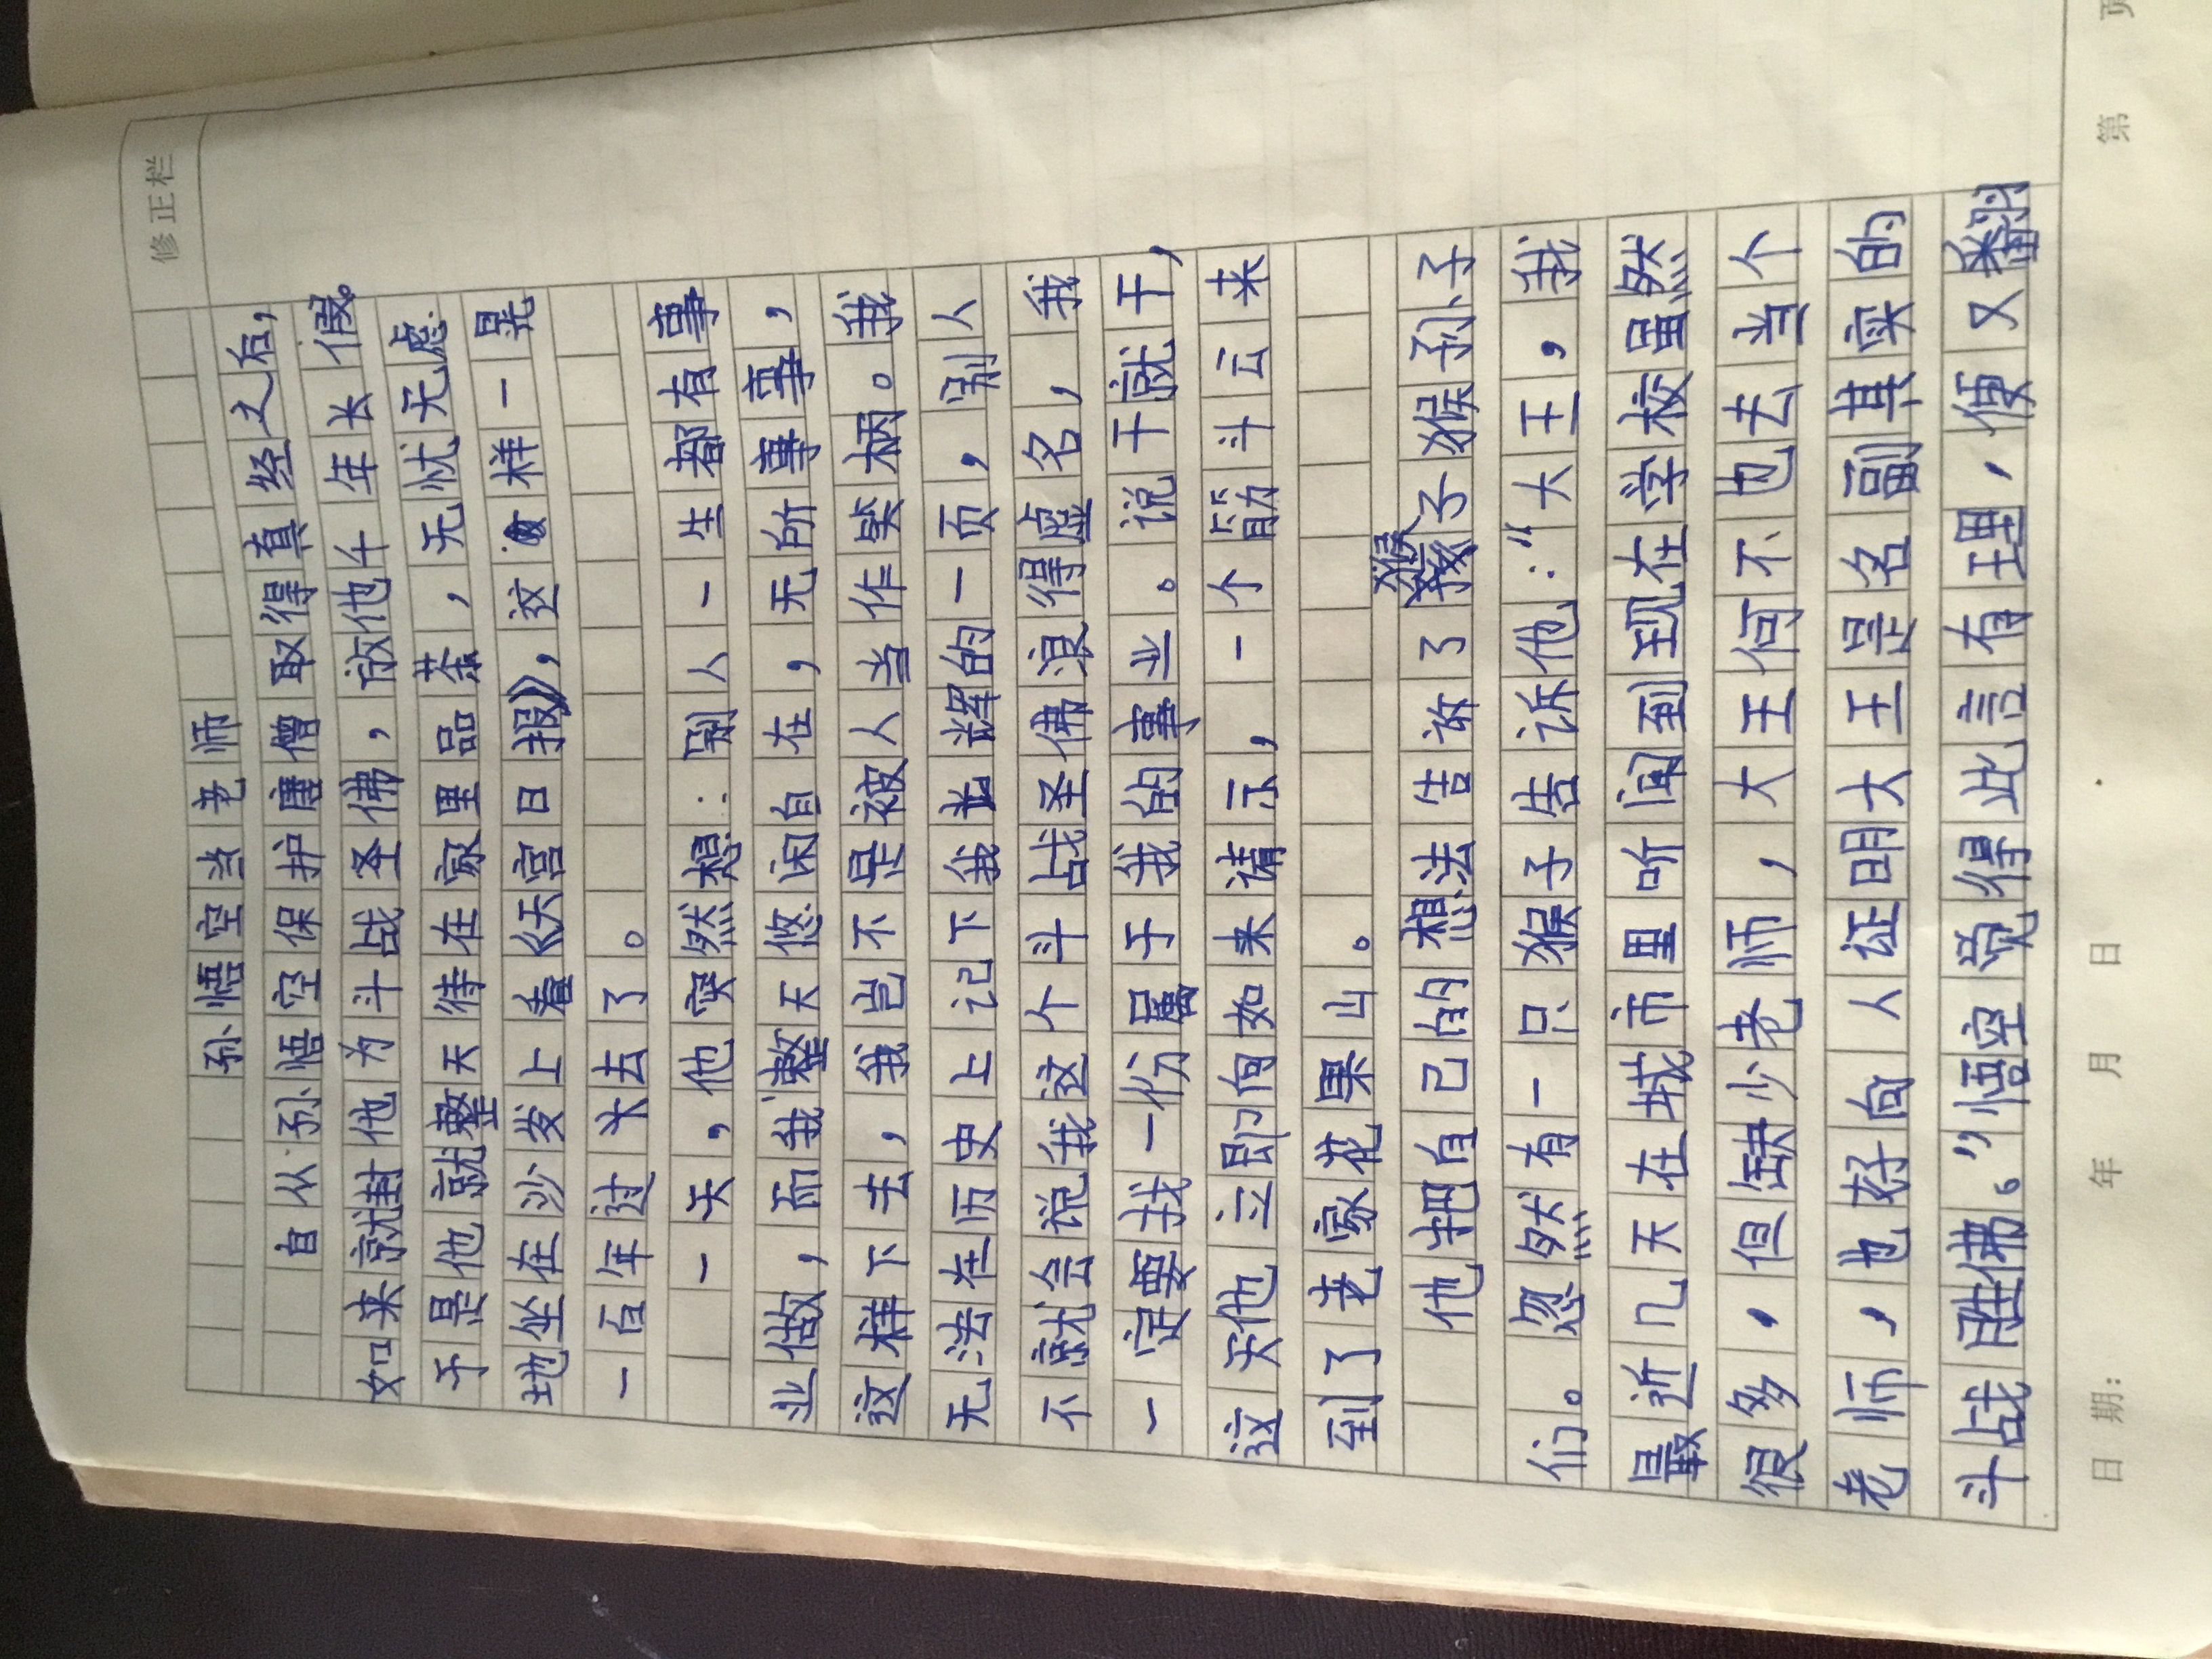 修正栏
孙悟空当老师
自从孙悟空保护唐僧取得真经之后,
如来就封他为斗战圣佛,放他千年长假。
于是他就整天待在家里品茶,无忧无虑
地坐在沙发上看《天宫日报》,这样一晃
一百年过去了。
一天,他突然想:别人一生都有事
业做,而我整天悠闲自在,无所事事,
这样下去,我岂不是被人当作笑柄。我
无法在历史上记下我光辉的一页,别人
不就会说我这个斗战圣佛浪得虚名,我
一定要找一份属于我的事业。说干就干,
这天他立即向如来请示,一个筋斗云来
到了老家花果山。
他把自己的想法告诉了猴子猴孙子
们。忽然有一只猴子告诉他:“大王,我
最近几天在城市里听闻到现在学校虽然
很多,但缺少老师,大王何不也去当个
老师,也好向人证明大王是名副其实的
斗战胜佛。”悟空觉得此言有理,便又翻
日期: 年 月 日 第 页